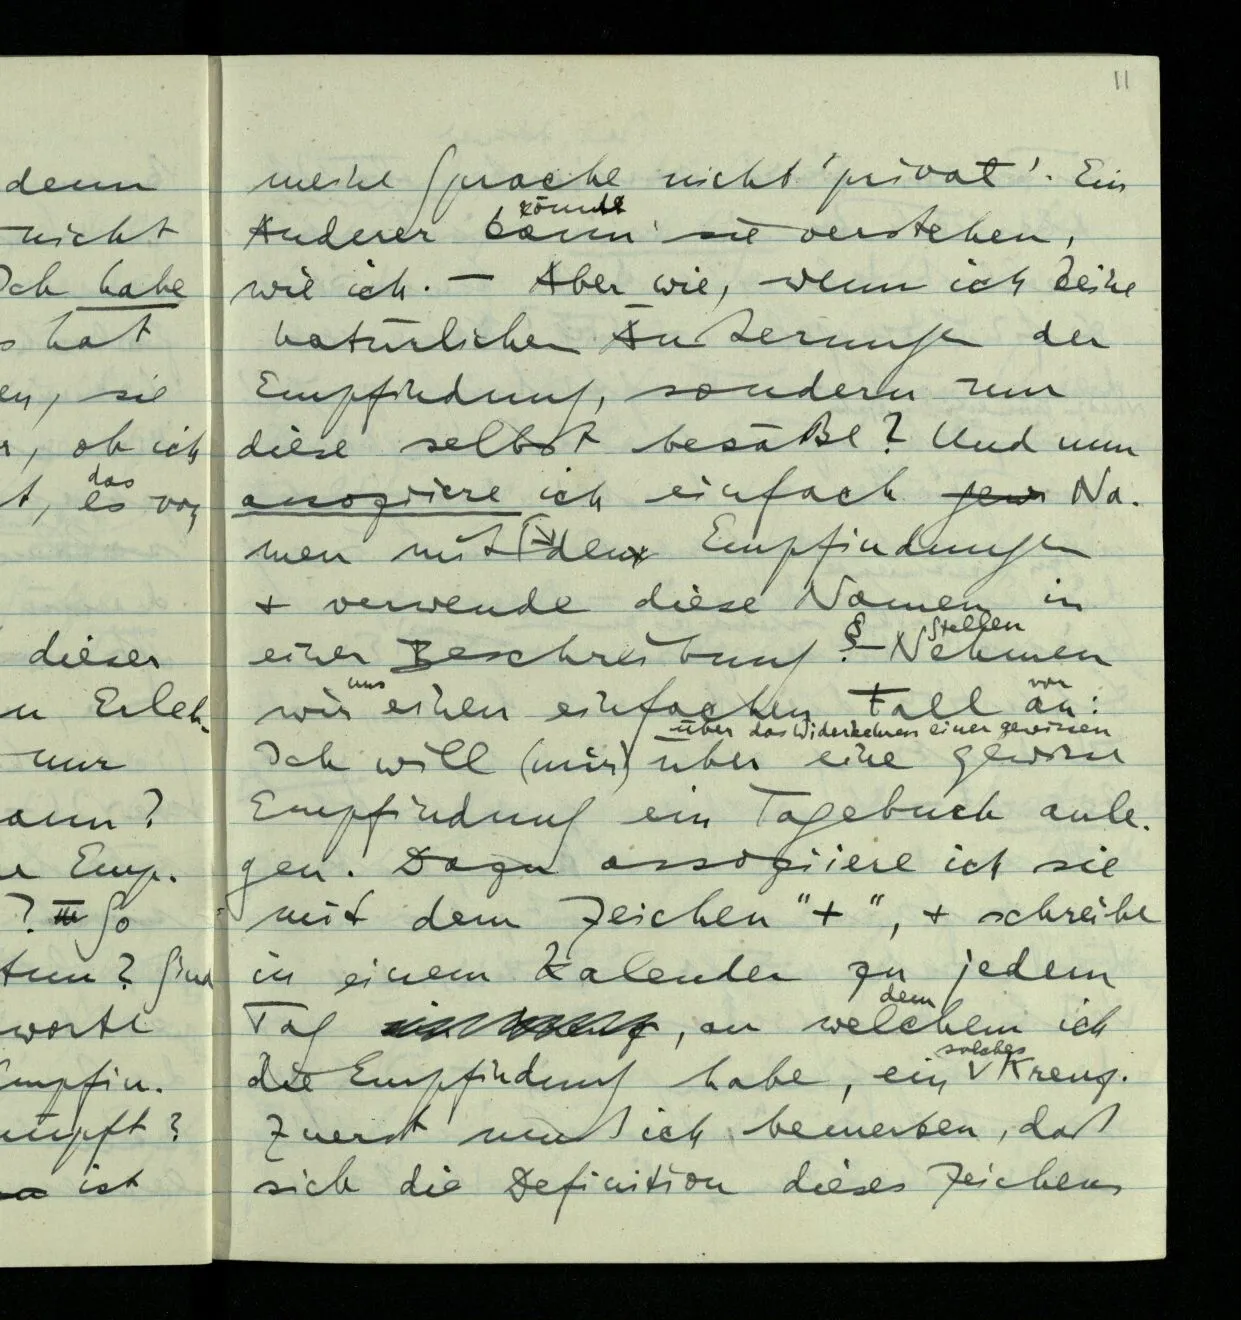 11
denn
nicht
Ich habe
hat
en, sie
ob ich
das
t, es vor
dieser
n Erleb-
nur
ann?
Emp-
? III So
tun? Sind
worte
Empfin-
nüpft?
ist
meine Sprache nicht 'privat'. Ein
könnte
Anderer kann sie verstehen,
wie ich. — Aber wie, wenn ich keine
natürlichen Äußerungen der
Empfindung, sondern nur
diese selbst besäße? Und nun
assoziiere ich einfach Na-
men mit den Empfindungen
+ verwende diese Namen in
Stellen
einer Beschreibung? § – Nehmen
uns vor
wir einen einfachen Fall an:
über das Widerkehren einer gewissen
Ich will (mir) über eine gewisse
Empfindung ein Tagebuch anle-
gen. Dazu assoziiere ich sie
mit dem Zeichen "+", + schreibe
in einem Kalender zu jedem
dem
Tag , an welchem ich
solches
die Empfindung habe, ein Kreuz.
Zuerst muß ich bemerken, daß
sich die Definition dieses Zeichens